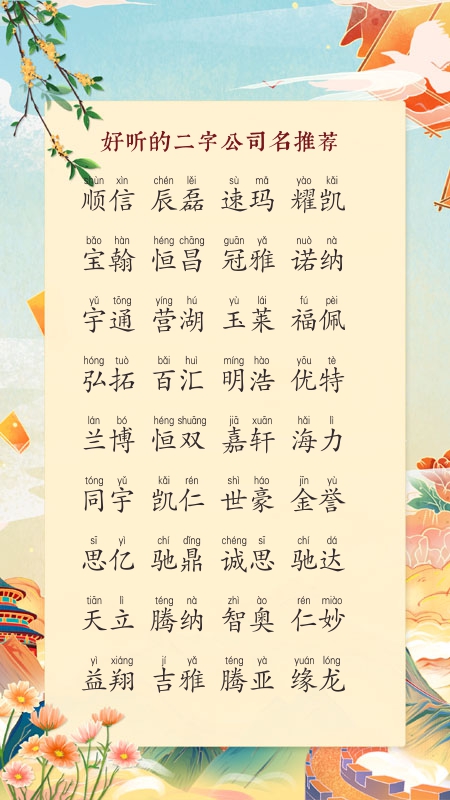 好听的二字公司名推荐
shùn xìn chén lěi sù mǎ yào kǎi
顺信 辰磊 速玛 耀凯
bǎo hàn héng chāng guān yǎ nuò nà
宝翰 恒昌 冠雅 诺纳
yǔ tōng yíng hú yù lái fú pèi
宇通 营湖 玉莱 福佩
hóng tuò bǎi huì míng hào yōu tè
弘拓 百汇 明浩 优特
lán bó héng shuāng jiā xuān hǎi lì
兰博 恒双 嘉轩 海力
tóng yǔ kǎi rén shì háo jīn yù
同宇 凯仁 世豪 金誉
sī yì chí dǐng chéng sī chí dá
思亿 驰鼎 诚思 驰达
tiān lì téng nà zhì ào rén miào
天立 腾纳 智奥 仁妙
yì xiáng jí yǎ téng yà yuán lóng
益翔 吉雅 腾亚 缘龙